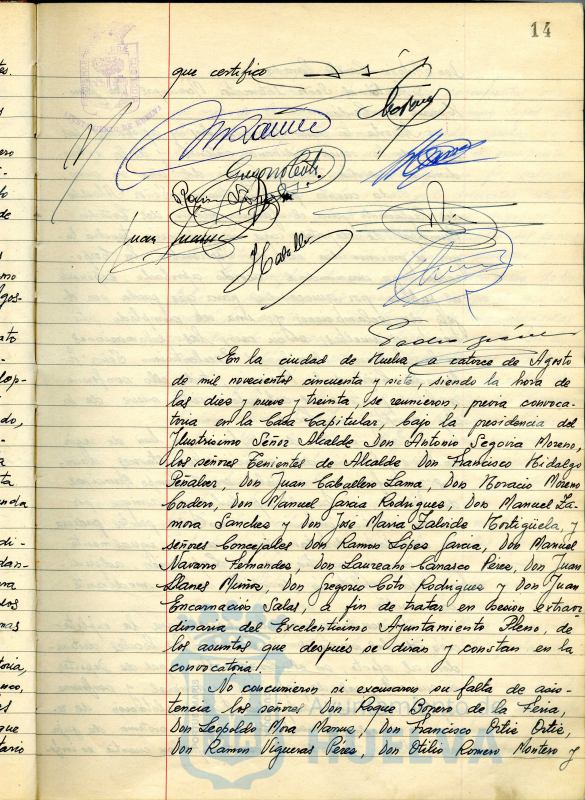 14
que certifico
En la ciudad de Huelva, a catorce de Agosto
de mil novecientos cincuenta y siete, siendo la hora de
las diez y nueve y treinta, se reunieron, previa convoca-
toria en la Casa Capitular, bajo la presidencia del
Ilustrisimo Señor Alcalde Don Antonio Segovia Moreno,
los señores Tenientes de Alcalde, Don Francisco Hidalgo
Peñalver, Don Juan Caballero Lama, Don Horacio Moreno
Cordero, Don Manuel Garcia Rodriguez, Don Manuel Za-
mora Sanchez y Don Jose Maria Zalvide Hortigüela, y
señores Concejales Don Ramon López Garcia, Don Manuel
Navarro Fernandez, Don Laureano Carrasco Pérez, Don Juan
Llanes Muñoz, Don Gregorio Coto Rodriguez y Don Juan
Encarnación Salas, a fin de tratar en Sesion extraor
dinaria del Excelentisimo Ayuntamiento Pleno, de
los asuntos que despues se dirán y constan en la
convocatoria.
No concurrieron ni excusaron su falta de asis-
tencia los señores Don Roque Bonero de la Feria,
Don Leopoldo Mora Manuz, Don Francisco Ortiz Ortiz,
Don Ramon Vigueras Pérez, Don Otilio Romero Montero y
HUELVA